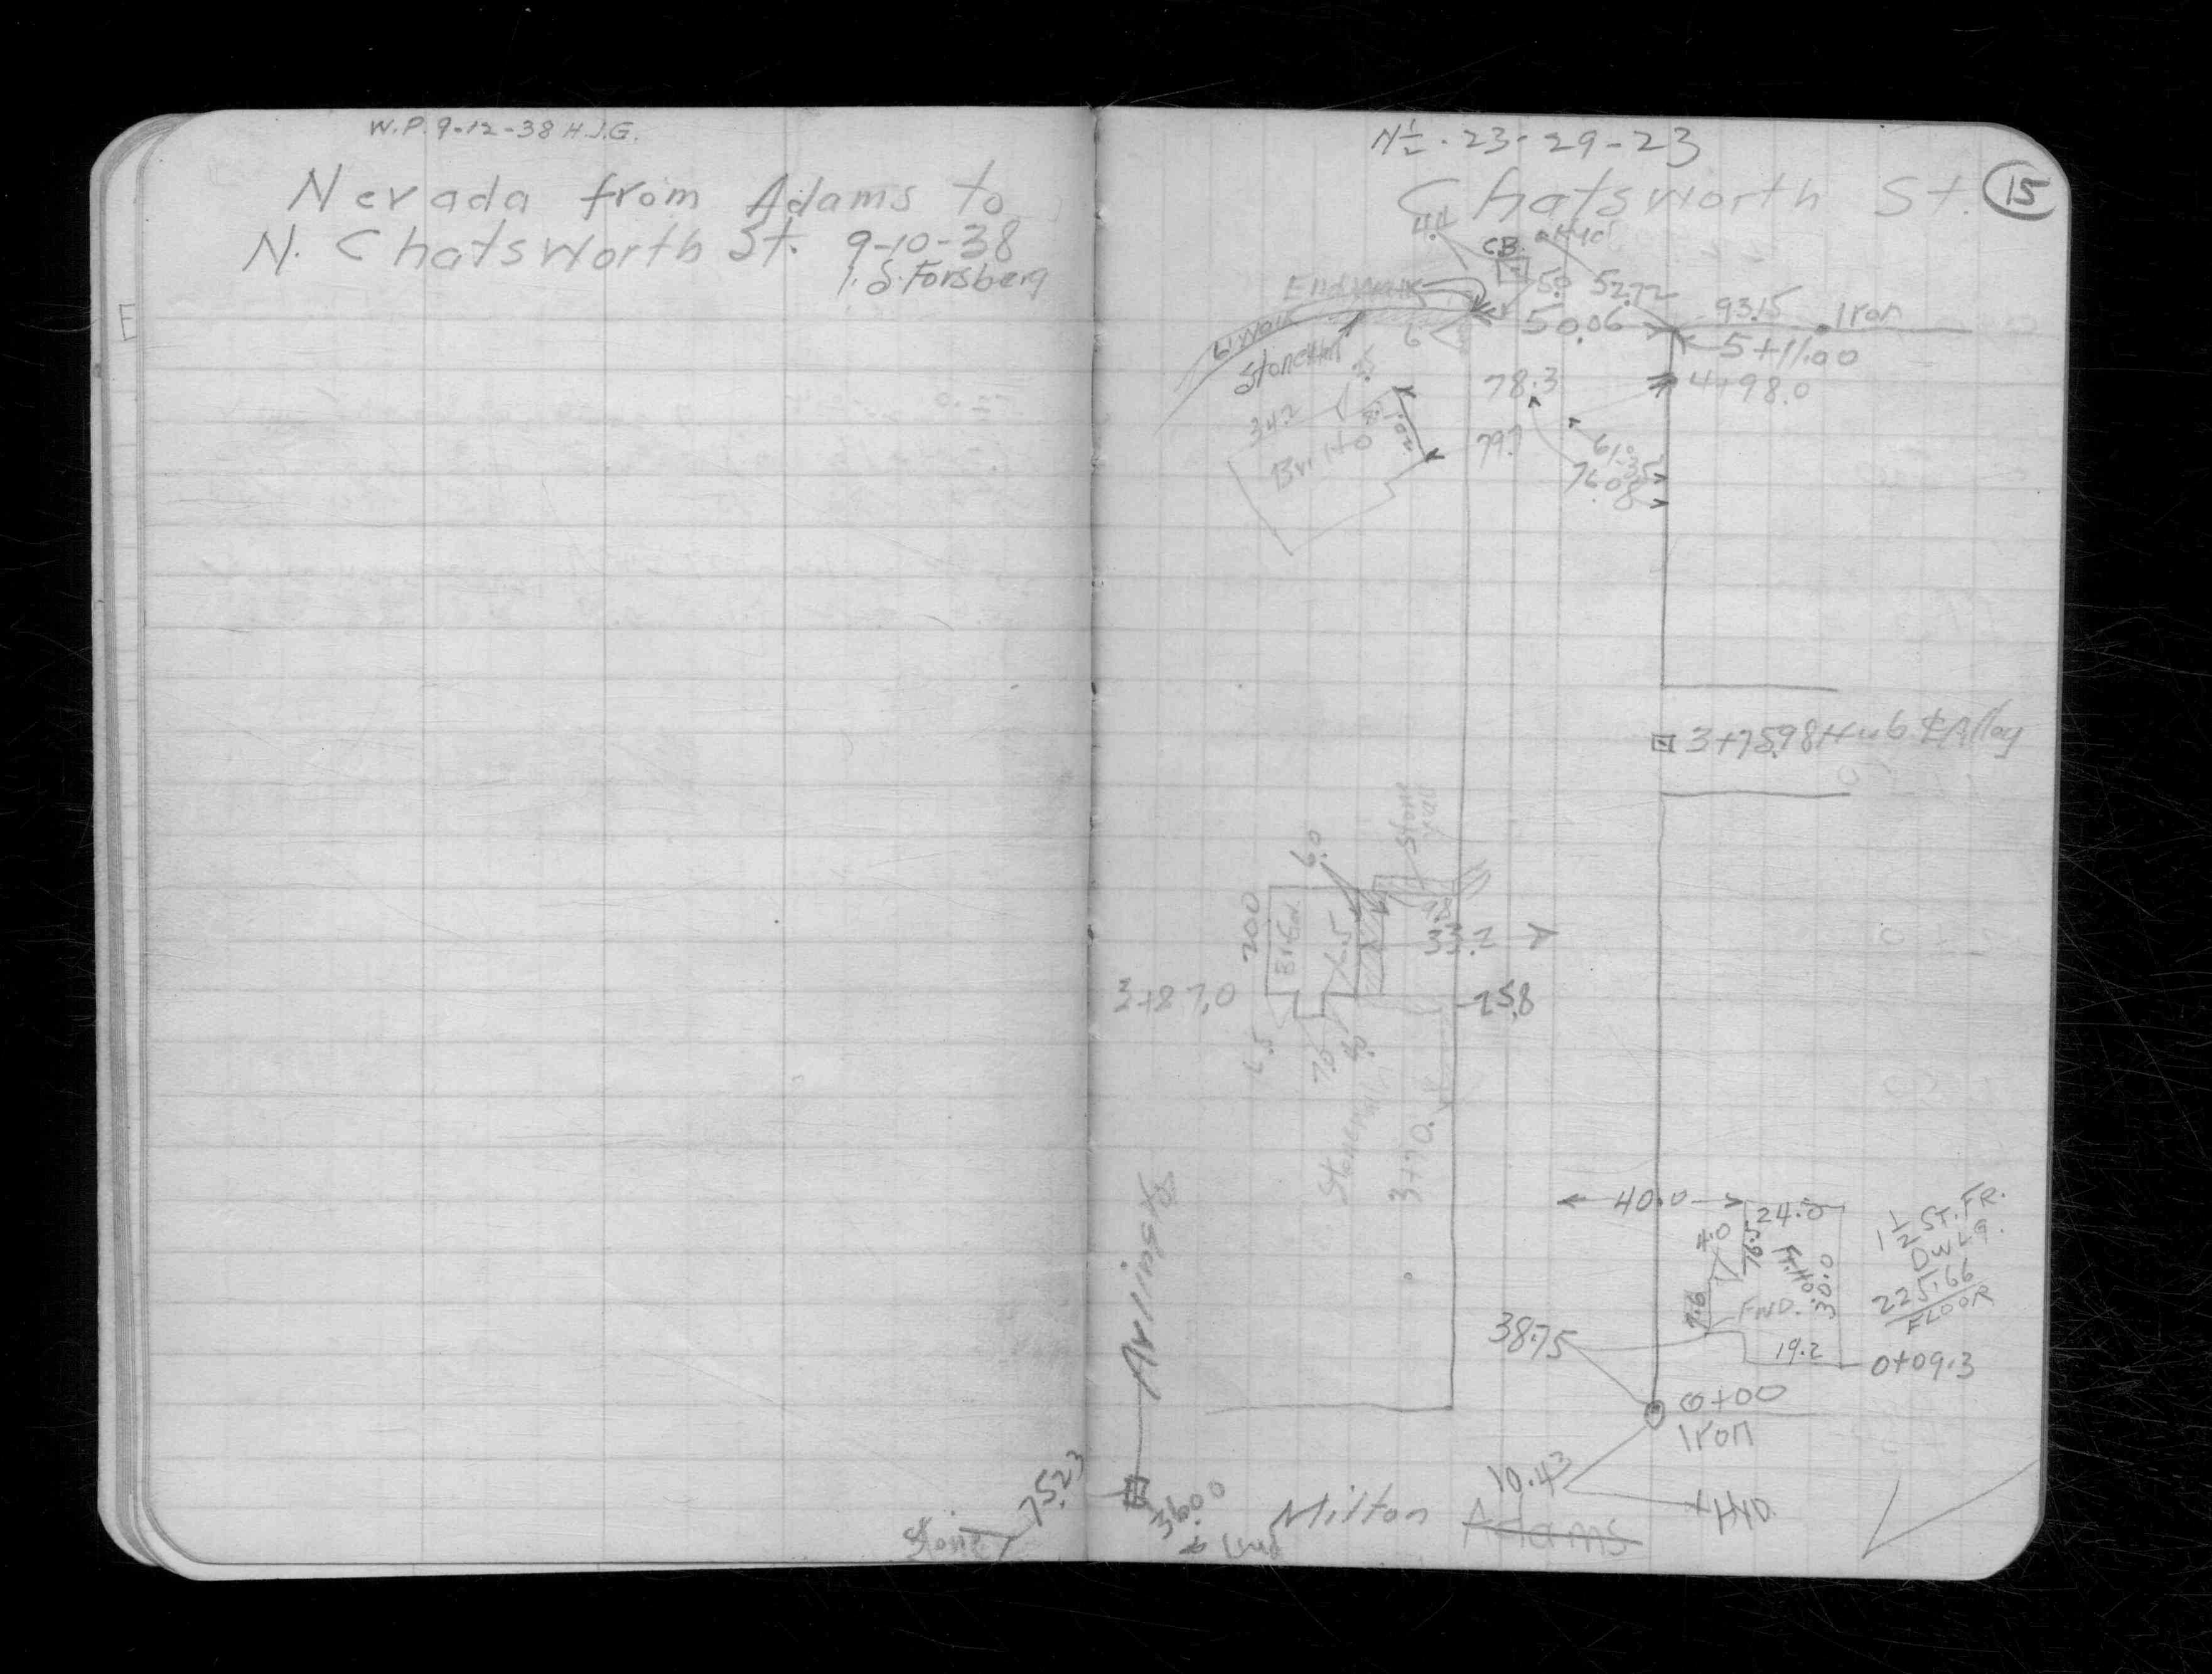 W.P. 9-12-38 H.J.G.
Nevada from Adams to
N. Chatsworth St. 9-10-38
Forsberg
E
Stone
75.23
N½ . 23-29-23
Chatsworth St.
15
4.4
C.B.
5.0
52.72
End Walk
50.06
93.15
Iron
6' Walk
6
5+11.00
78.3
4+98.0
34.2
20.1
79.7
61.35
76.08
3+75.98 Hub ℄ Alley
Stone
6.0
20.0
16.5
33.2
3+87.0
25.8
6.5
7.0
Stone walk
3+70.
40.0
24.0
4.0
76.5
Fr. Ho.
30.0
7.6
FND.
1½ ST. FR.
DWLG.
225.66
FLOOR
38.75
19.2
0+09.3
0+00
Iron
10.43
HYD.
Arlington
36.00
Milton
Adams